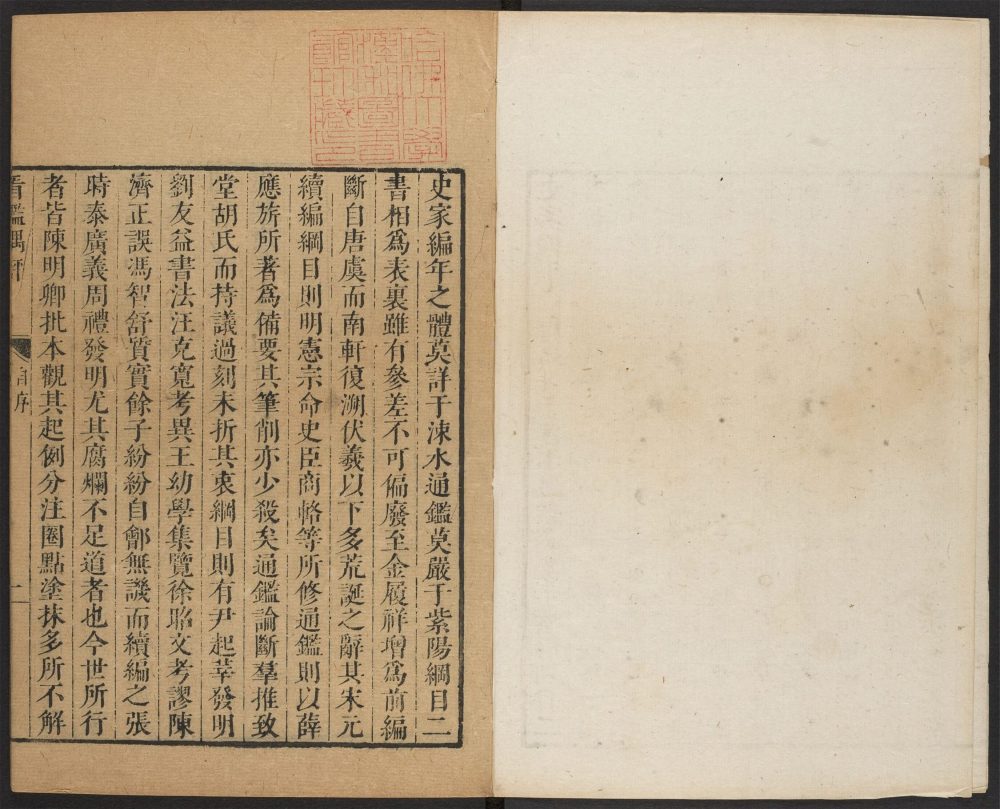 史家編年之體莫詳于涑水通鑑莫嚴于紫陽綱目二
書相爲表裏雖有參差不可偏廢至金履祥增爲前編
斷自唐虞而南軒復溯伏羲以下多荒誕之辭其宋元
續編綱目則明憲宗命史臣商輅等所修通鑑則以薛
應旂所著爲備要其筆削亦少殺矣通鑑論斷羣推致
堂胡氏而持議過刻未折其衷綱目則有尹起莘發明
劉友益書法汪克寬考異王幼學集覽徐昭文考謬陳
濟正誤馮智舒質實餘子紛紛自鄶無譏而續編之張
時泰廣義周禮發明尤其腐爛不足道者也今世所行
者皆陳明卿批本觀其起例分注圈點塗抹多所不解
看鑑偶評
自序
一
哈佛大學
漢和圖書
館珍藏印